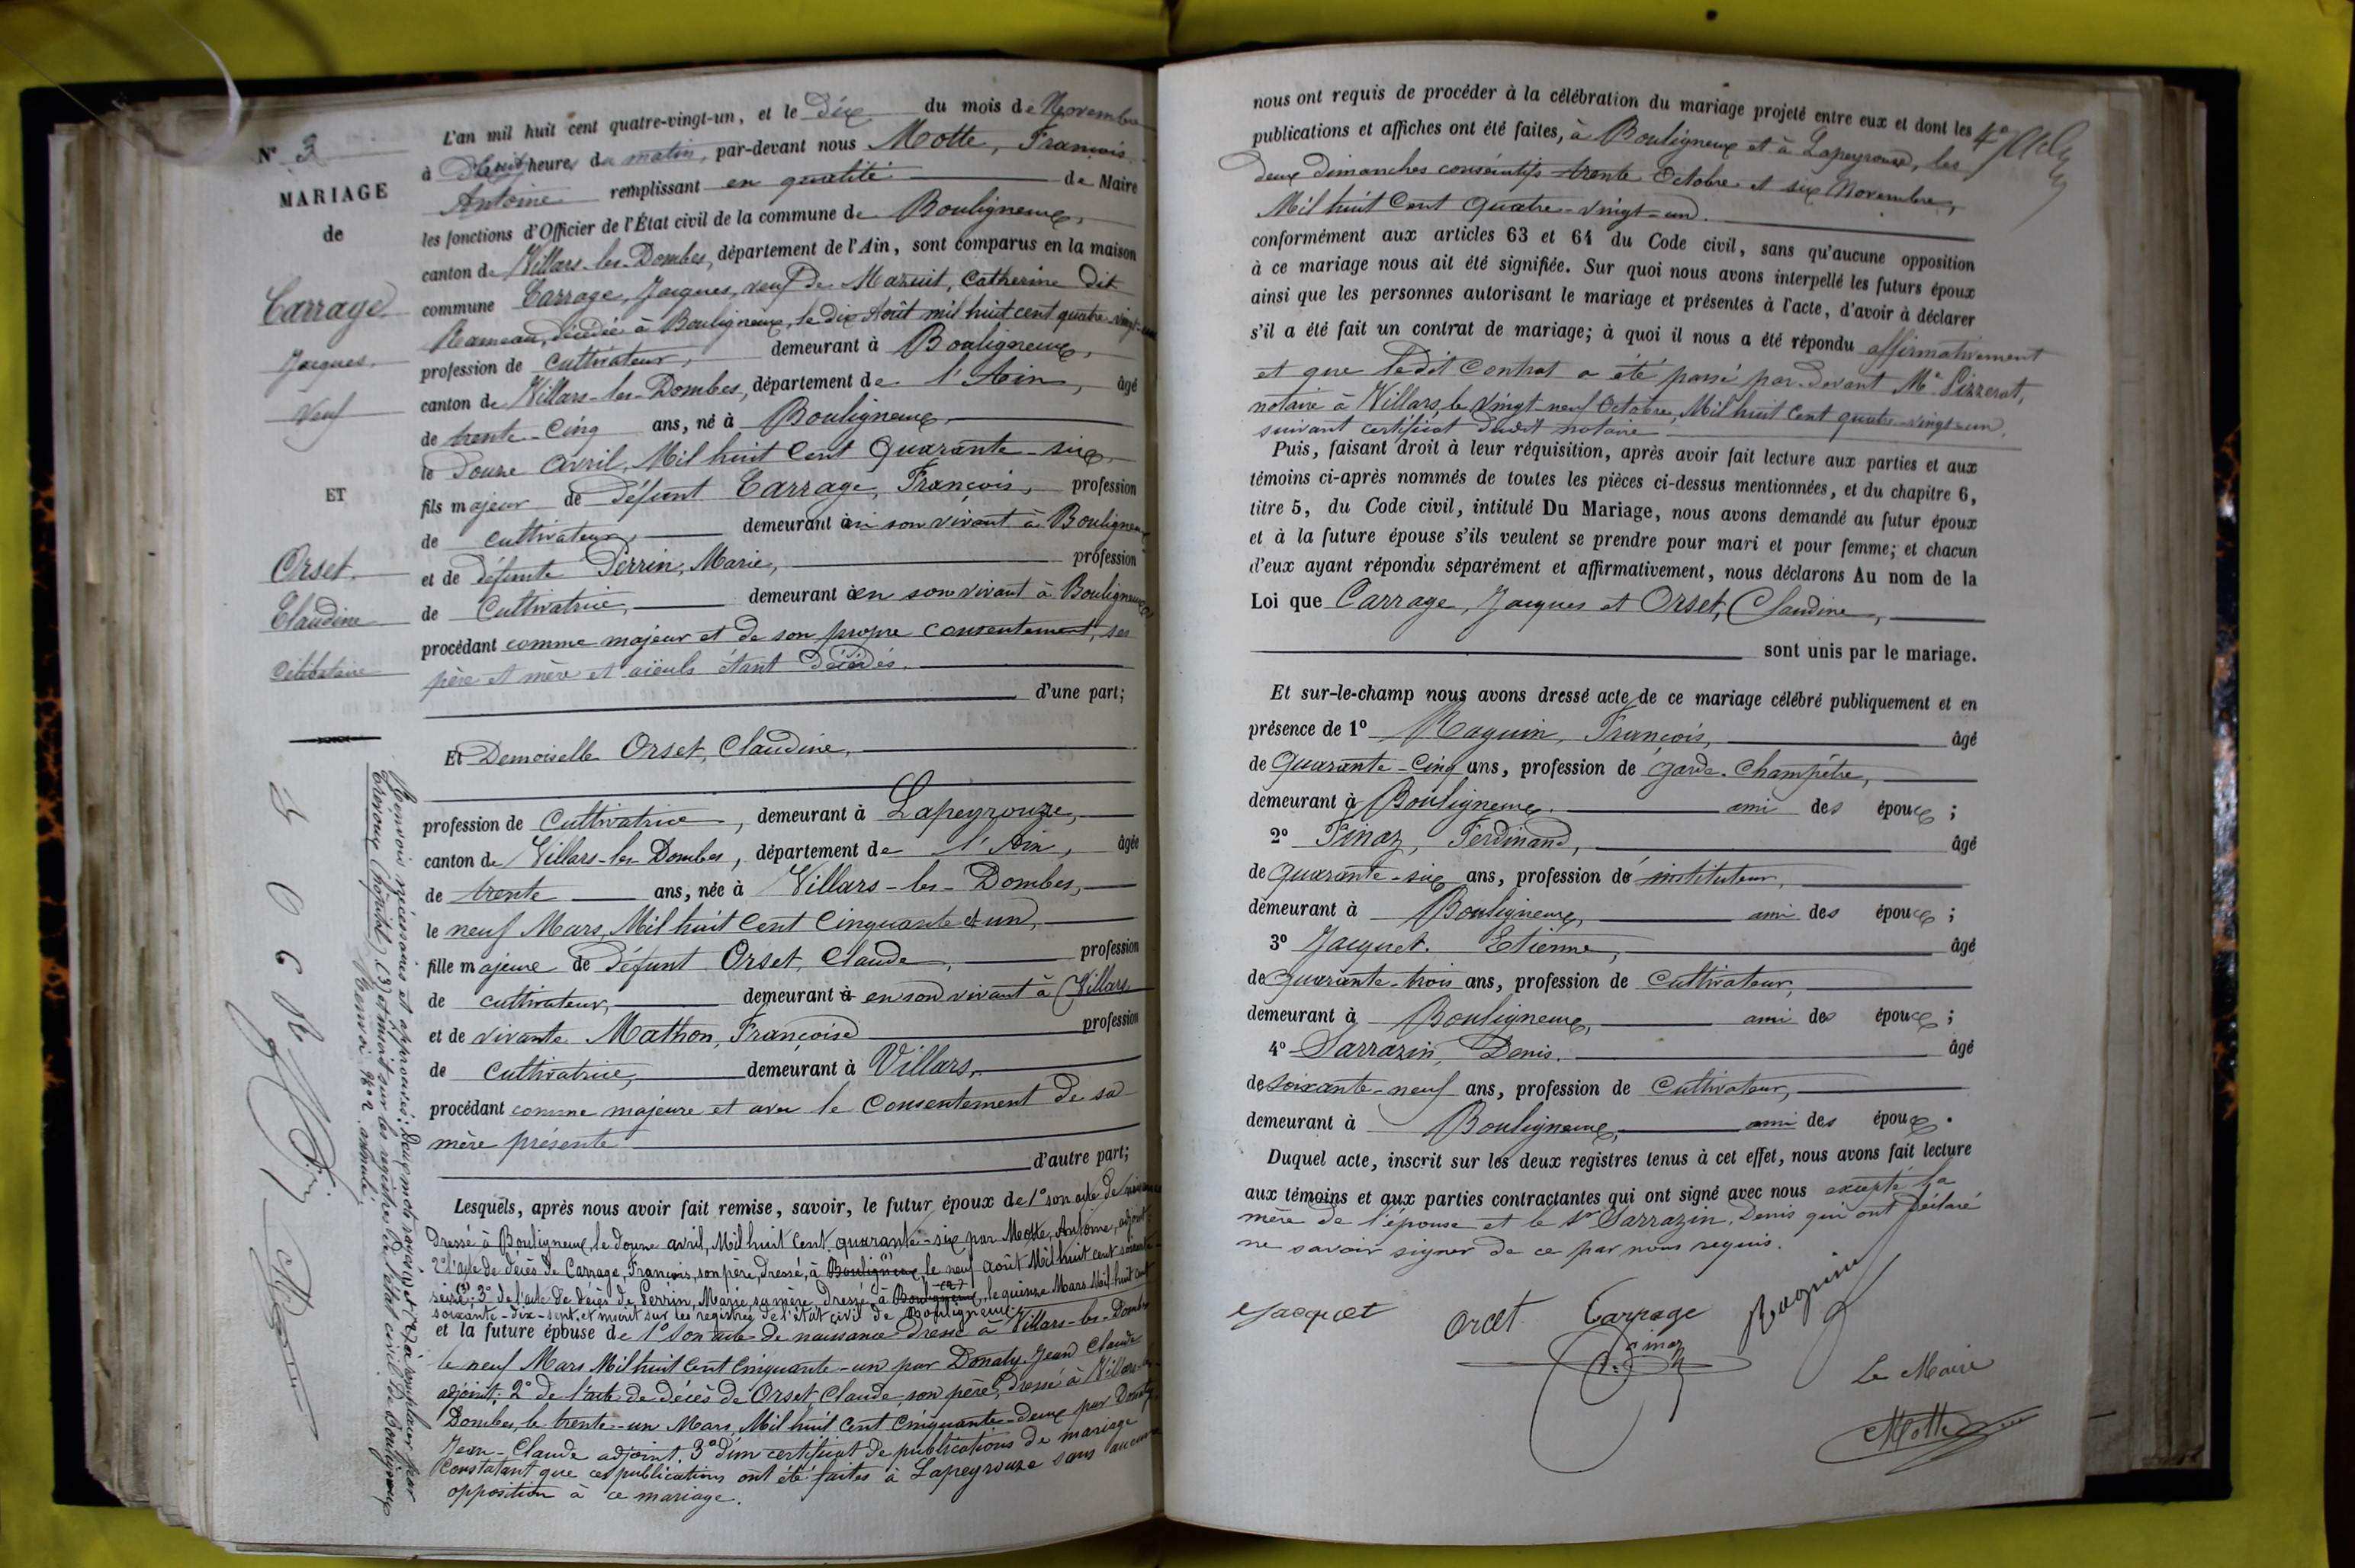 N° 3
MARIAGE
de
Carrage
Jacques.
Veuf
ET
Orset.
Claudine
Célibataire
L'an mil huit cent quatre-vingt-un, et le dix du mois de Novembre
à heures du matin, par-devant nous Motte, François
Antoine remplissant en qualité de Maire
les fonctions d'Officier de l'État civil de la commune de Bouligneux,
canton de Villars-les-Dombes, département de l'Ain, sont comparus en la maison
commune Carrage, Jacques, veuf de Mazuit, Catherine dit
Rameau, décédée à Bouligneux, le dix Août mil huit cent quatre-vingt-un
profession de cultivateur, demeurant à Bouligneux,
canton de Villars-les-Dombes, département de l'Ain, âgé
de trente-cinq ans, né à Bouligneux
le douze Avril, Mil huit Cent Quarante-six
fils majeur de défunt Carrage, François, profession
de cultivateur, demeurant à en son vivant à Bouligneux
et de défunte Perrin, Marie, profession
de Cultivatrice, demeurant à en son vivant à Bouligneux
procédant comme majeur et de son propre consentement, ses
père et mère et aïeuls étant décédés.
d'une part;
Et Demoiselle Orset, Claudine,
profession de Cultivatrice, demeurant à Lapeyrouze,
canton de Villars-les-Dombes, département de l'Ain, âgée
de trente ans, née à Villars-les-Dombes,
le neuf Mars, Mil huit Cent Cinquante et un,
fille majeure de défunt Orset, Claude, profession
de cultivateur, demeurant à en son vivant à Villars
et de vivante Mathon, Françoise profession
de Cultivatrice, demeurant à Villars,
procédant comme majeure et avec le Consentement de sa
mère présente
d'autre part;
Lesquels, après nous avoir fait remise, savoir, le futur époux de 1° son acte de naissance
dressé à Bouligneux, le douze avril, Mil huit Cent quarante-six par Motte, Antoine, adjoint;
2° l'acte de décès de Carrage, François, son père, dressé, à Bouligneux (1), le neuf Août Mil huit cent soixante
seize (3); 3° de l'acte de décès de Perrin, Marie, sa mère dressé à Bouligneux (2), le quinze Mars Mil huit cent
soixante-dix-sept et inscrit sur les registres de l'état civil de Bouligneux.
et la future épouse de 1° son acte de naissance dressé à Villars-les-Dombes
le neuf Mars Mil huit Cent Cinquante-un par Donaty Jean Claude
adjoint; 2° de l'acte de décès de Orset, Claude, son père, dressé à Villars-les
Dombes, le trente-un Mars, Mil huit Cent Cinquante-deux par Donaty
Jean-Claude adjoint. 3° d'un certificat de publications de mariage
constatant que ces publications ont été faites à Lapeyrouze sans aucune
opposition à ce mariage.
Renvois nécessaires et approuvés: Deux mots rayés (1) et (2) à remplacer par
Trévoux (hôpital) (3) et inscrit sur les registres de l'état civil de Bouligneux
Renvoi N° 2 annulé.
J O C R
nous ont requis de procéder à la célébration du mariage projeté entre eux et dont les
publications et affiches ont été faites, à Bouligneux et à Lapeyrouze, les
deux dimanches consécutifs trente Octobre et six Novembre,
Mil huit Cent Quatre-vingt-un.
conformément aux articles 63 et 64 du Code civil, sans qu'aucune opposition
à ce mariage nous ait été signifiée. Sur quoi nous avons interpellé les futurs époux
ainsi que les personnes autorisant le mariage et présentes à l'acte, d'avoir à déclarer
s'il a été fait un contrat de mariage; à quoi il nous a été répondu affirmativement
et que le dit Contrat a été passé par-devant Me Pizzerat,
notaire à Villars, le vingt-neuf Octobre, Mil huit Cent quatre-vingt-un,
suivant certificat dudit notaire
Puis, faisant droit à leur réquisition, après avoir fait lecture aux parties et aux
témoins ci-après nommés de toutes les pièces ci-dessus mentionnées, et du chapitre 6,
titre 5, du Code civil, intitulé Du Mariage, nous avons demandé au futur époux
et à la future épouse s'ils veulent se prendre pour mari et pour femme; et chacun
d'eux ayant répondu séparément et affirmativement, nous déclarons Au nom de la
Loi que Carrage, Jacques et Orset, Claudine,
sont unis par le mariage.
Et sur-le-champ nous avons dressé acte de ce mariage célébré publiquement et en
présence de 1° Raguin, François, âgé
de Quarante-Cinq ans, profession de garde-Champêtre,
demeurant à Bouligneux. ami des époux;
2° Finaz, Ferdinand, âgé
de Quarante-six ans, profession de instituteur,
demeurant à Bouligneux, ami des époux;
3° Jacquet. Etienne, âgé
de Quarante-trois ans, profession de Cultivateur,
demeurant à Bouligneux, ami des époux;
4° Sarrazin, Denis. âgé
de soixante-neuf ans, profession de Cultivateur,
demeurant à Bouligneux, ami des époux.
Duquel acte, inscrit sur les deux registres tenus à cet effet, nous avons fait lecture
aux témoins et aux parties contractantes qui ont signé avec nous excepté la
mère de l'épouse et le Sr Sarrazin, Denis qui ont déclaré
ne savoir signer de ce par nous requis.
Jacquet Orcet Carrage Raguin
Finaz
Le Maire
Motte